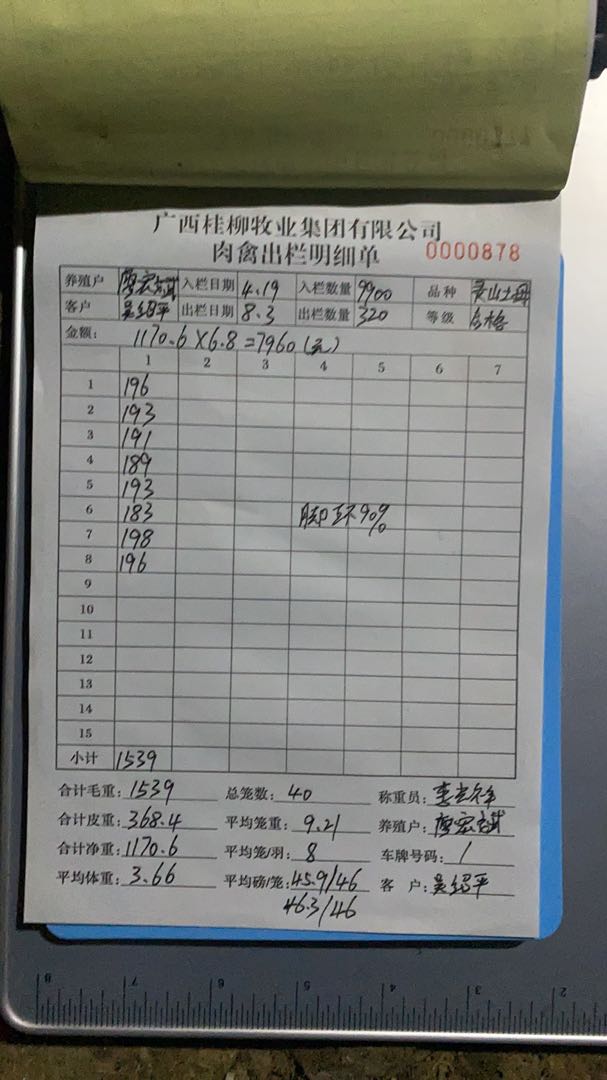 广西桂柳牧业集团有限公司
肉禽出栏明细单 0000878
养殖户 廖宏斌 入栏日期 4.19 入栏数量 9900 品种 灵山土母
客户 吴绍平 出栏日期 8.3 出栏数量 320 等级 合格
金额: 1170.6×6.8=7960(元)
1 2 3 4 5 6 7
1 196
2 193
3 191
4 189
5 193
6 183 脚环90%
7 198
8 196
9
10
11
12
13
14
15
小计 1539
合计毛重: 1539 总笼数: 40 称重员:
合计皮重: 368.4 平均笼重: 9.21 养殖户: 廖宏斌
合计净重: 1170.6 平均笼/羽: 8 车牌号码: /
平均体重: 3.66 平均磅/笼: 45.9/46 客 户: 吴绍平
46.3/46
8 7 6 5 4 3 2